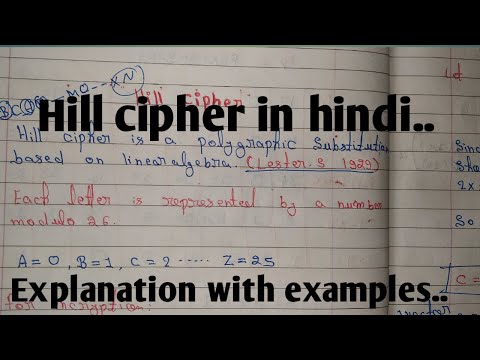 Hill Cipher
Hill cipher in hindi..
Hill cipher is a polygraphic substitution
based on linear algebra. (Lester. S 1929)
Each letter is represented by a number
modulo 26.
A = 0 , B = 1 , C = 2 ----- Z = 25
Explanation with examples..
For encryption:
ld
Sinc
2x
So
C =